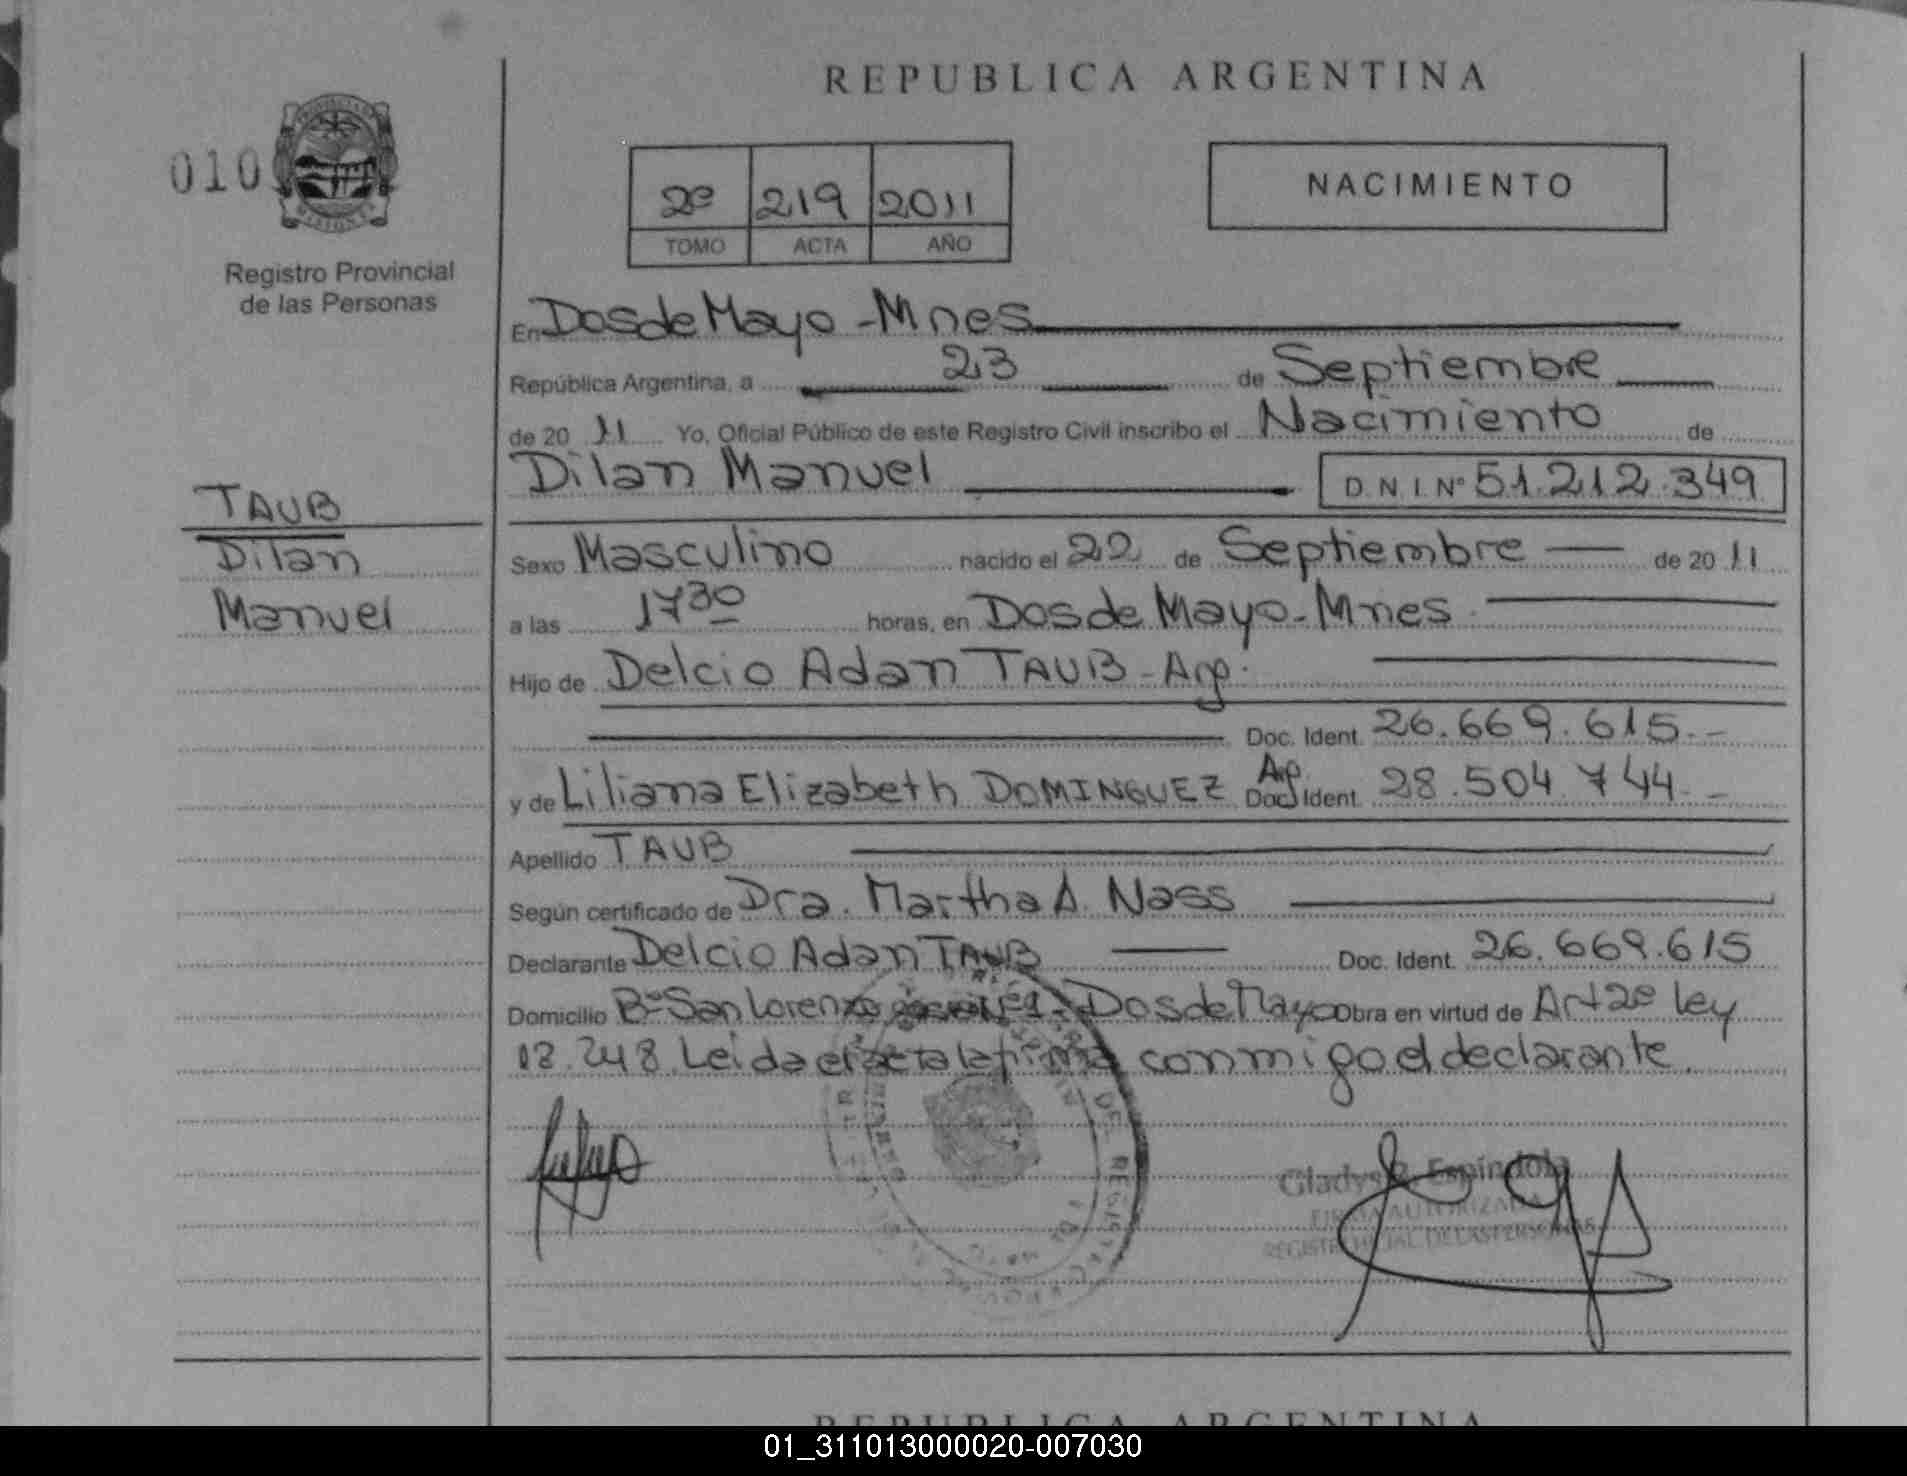 REPUBLICA ARGENTINA
010
Registro Provincial
de las Personas
2º 219 2011
TOMO ACTA AÑO
NACIMIENTO
En Dos de Mayo - Mnes
República Argentina, a 23 de Septiembre
de 20 11 Yo, Oficial Público de este Registro Civil inscribo el Nacimiento de
Dilan Manuel D.N.I. Nº 51.212.349
TAUB
Dilan
Manuel
Sexo Masculino nacido el 22 de Septiembre de 20 11
a las 17 30 horas, en Dos de Mayo - Mnes
Hijo de Delcio Adan TAUB - Arg.
Doc. Ident. 26.669.615.-
y de Liliana Elizabeth DOMINGUEZ Arg. Doc. Ident. 28.504.744.-
Apellido TAUB
Según certificado de Dra. Martha A. Nass
Declarante Delcio Adan TAUB Doc. Ident. 26.669.615
Domicilio Bº San Lorenzo Dos de Mayo Obra en virtud de Art 2º ley
18.248. Leida el acta la firma conmigo el declarante.
Gladys R. Espindola
FIRMA AUTORIZADA
REGISTRO PCIAL. DE LAS PERSONAS
REPUBLICA ARGENTINA
01_311013000020-007030